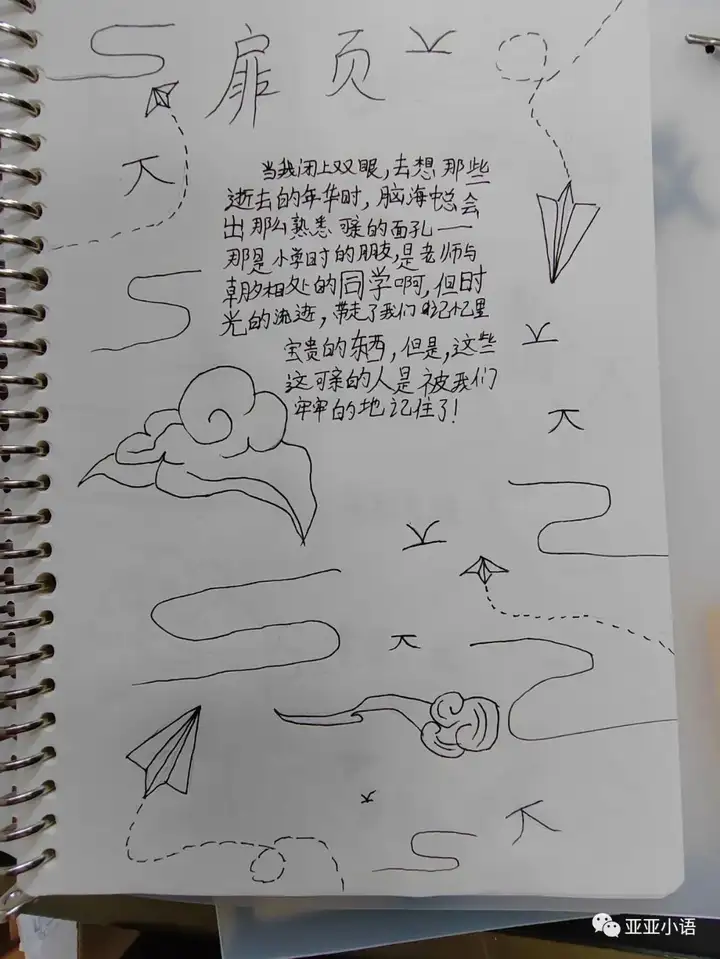 扉页
当我闭上双眼,去想那些
逝去的年华时,脑海中总会
出那么熟悉可亲的面孔——
那是小学时的朋友,是老师与
朝夕相处的同学啊,但时
光的流逝,带走了我们记忆里
宝贵的东西,但是,这些
这可亲的人是被我们
牢牢的地记住了!
亚亚小语